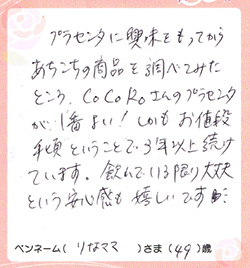 プラセンタに興味をもってから
あちこちの商品を調べてみた
ところ、CoCoRoさんのプラセンタ
が、1番よい！しかもお値段
手頃ということで、3年以上続け
ています。飲んでいる限り大丈夫
という安心感も嬉しいです
ペンネーム（りなママ）さま（49）歳